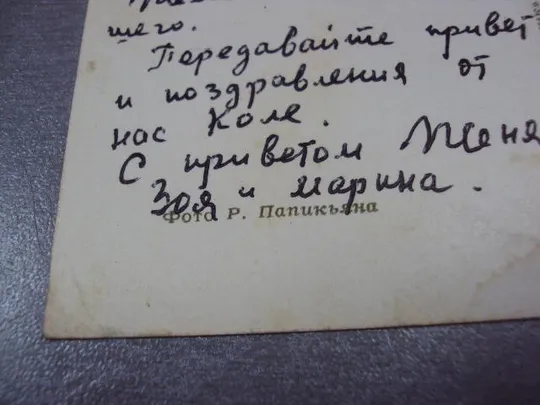 щего.
Передавайте привет
и поздравления от
нас Коле.
С приветом Женя
Зоя и Марина.
Фото Р. Папикьяна